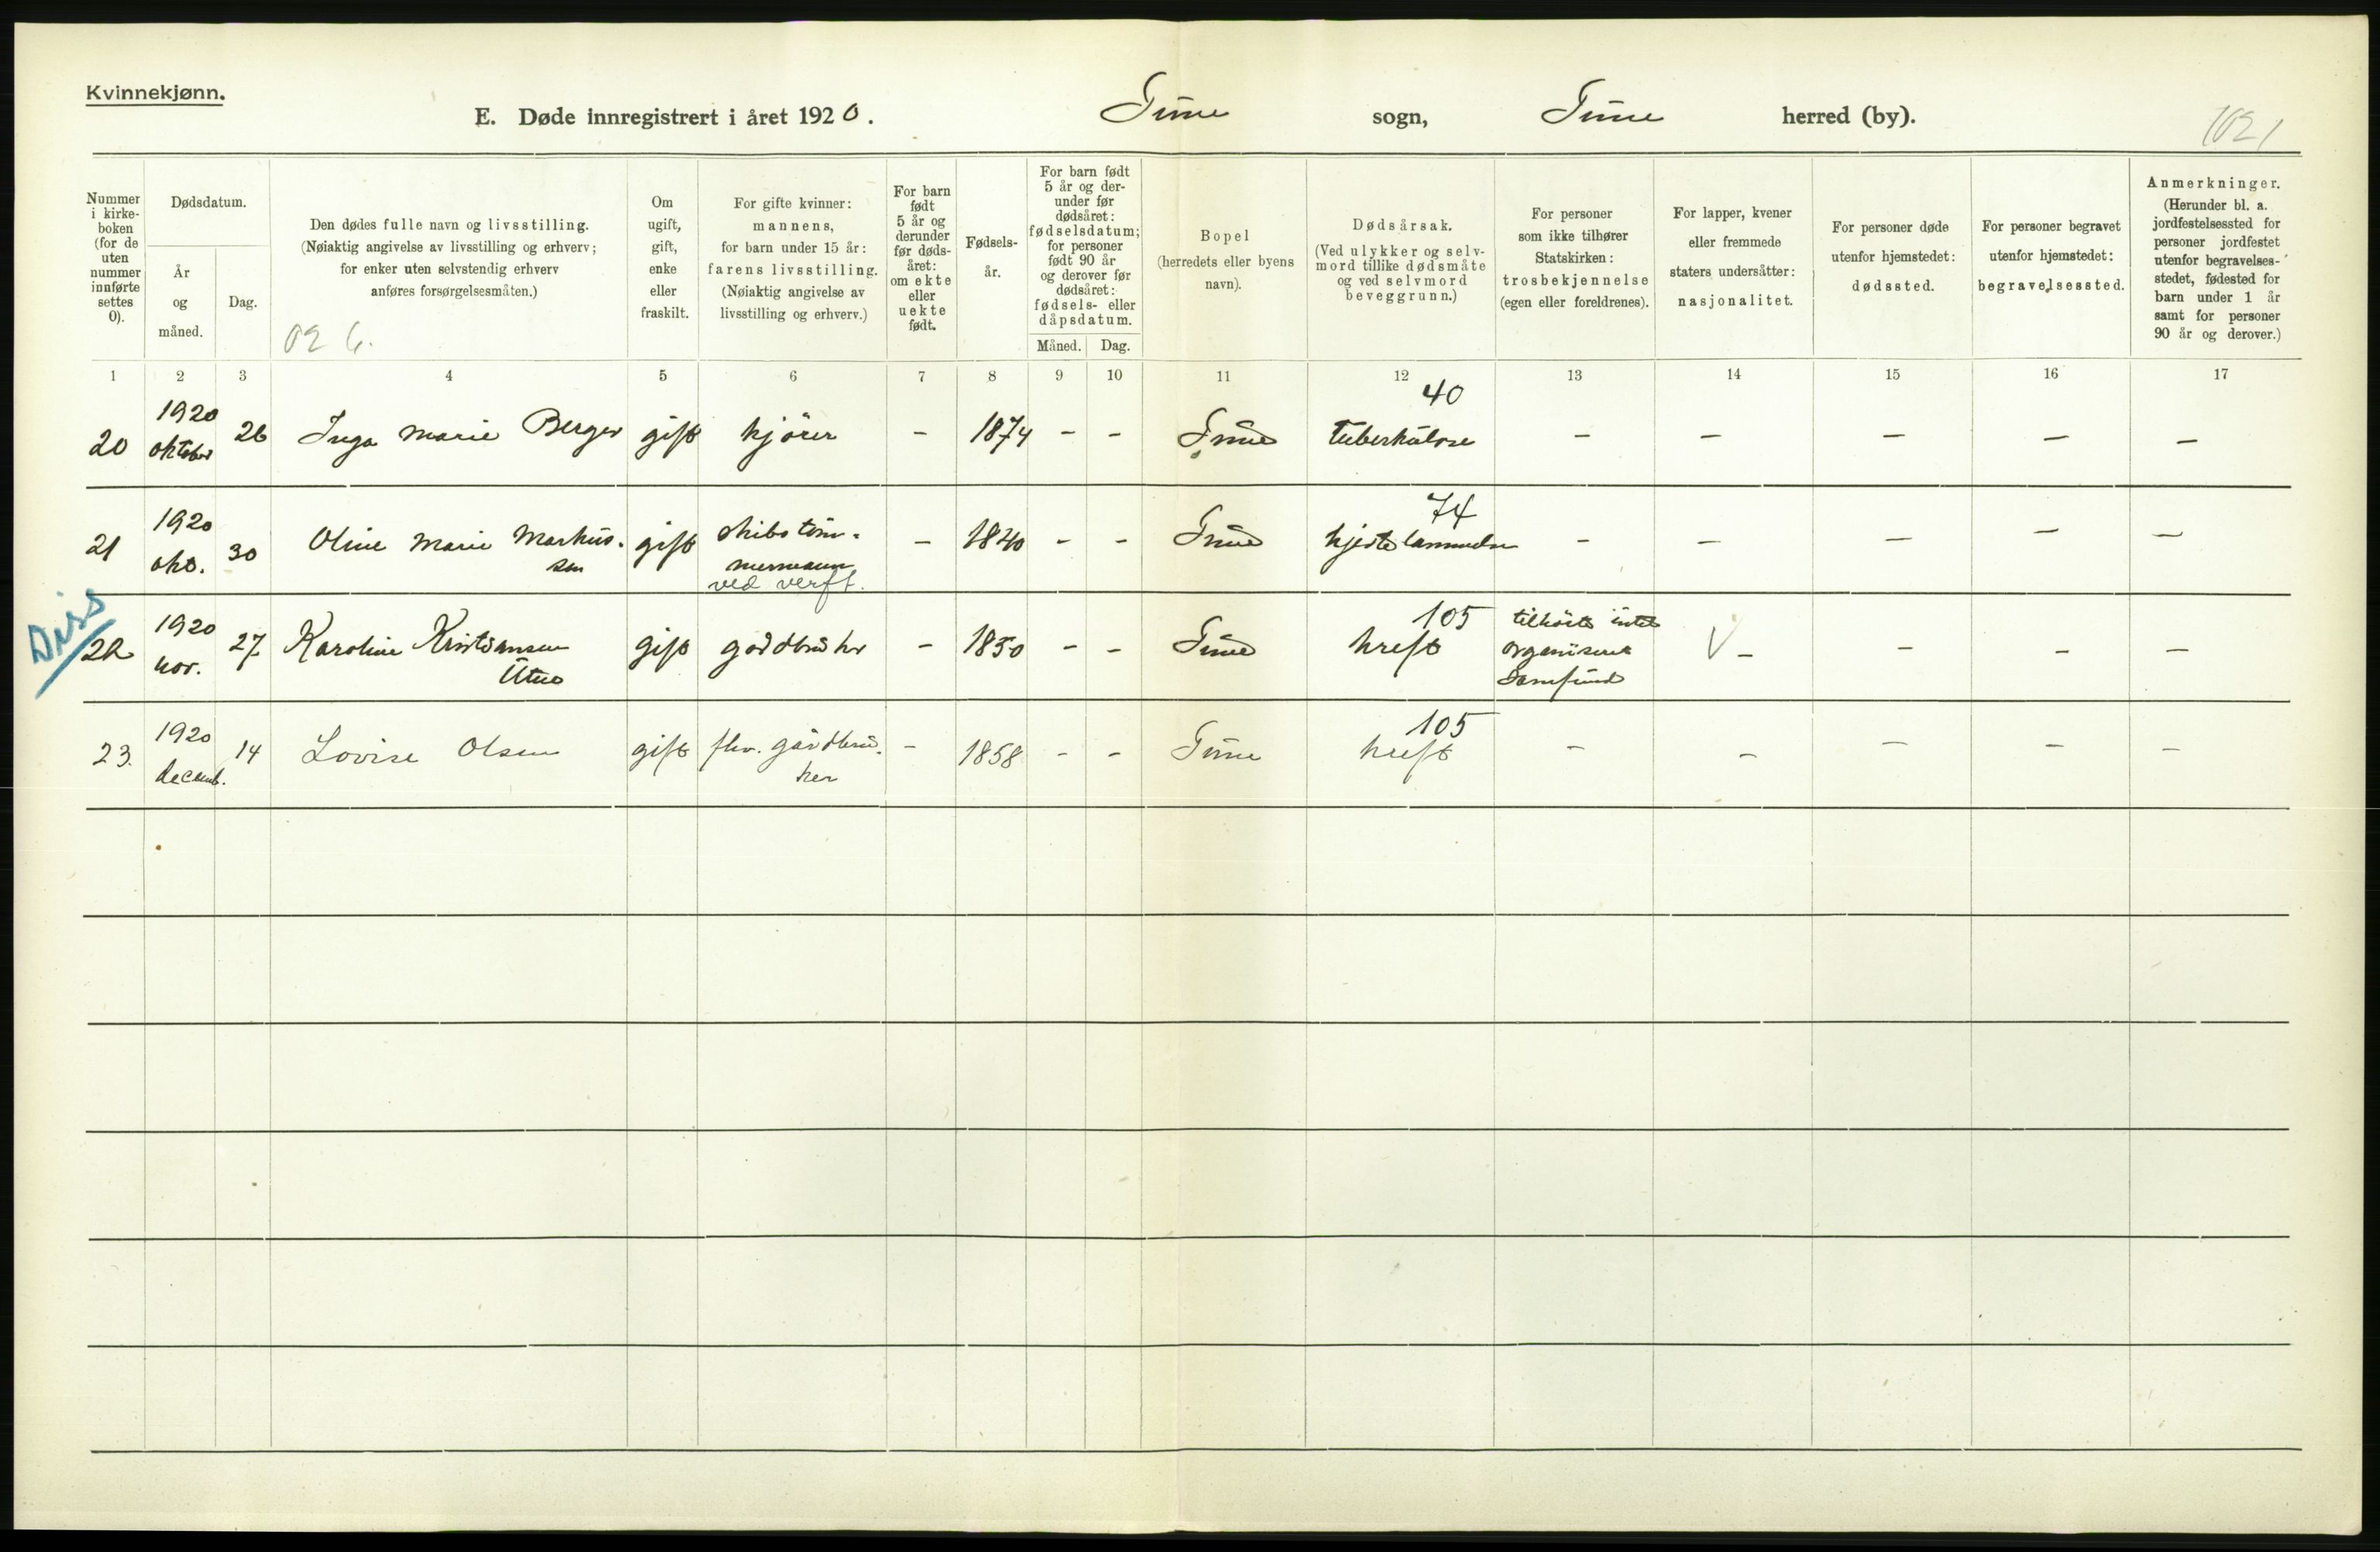 Kvinnekjønn.
E. Døde innregistrert i året 1920. Tune sogn, Tune herred (by).
1021
Nummer i kirkeboken (for de uten nummer innførte settes 0).
Dødsdatum.
År og måned.
Dag.
Den dødes fulle navn og livsstilling.
(Nøiaktig angivelse av livsstilling og erhverv;
for enker uten selvstendig erhverv
anføres forsørgelsesmåten.)
026.
Om ugift, gift, enke eller fraskilt.
For gifte kvinner:
mannens,
for barn under 15 år:
farens livsstilling.
(Nøiaktig angivelse av
livsstilling og erhverv.)
For barn født 5 år og derunder før dødsåret: om ekte eller uekte født.
Fødselsår.
For barn født 5 år og derunder før dødsåret: fødselsdatum; for personer født 90 år og derover før dødsåret: fødsels- eller dåpsdatum.
Måned. Dag.
Bopel
(herredets eller byens
navn).
Dødsårsak.
(Ved ulykker og selvmord tillike dødsmåte
og ved selvmord
beveggrunn.)
For personer
som ikke tilhører
Statskirken:
trosbekjennelse
(egen eller foreldrenes).
For lapper, kvener
eller fremmede
staters undersåtter:
nasjonalitet.
For personer døde
utenfor hjemstedet:
dødssted.
For personer begravet
utenfor hjemstedet:
begravelsessted.
Anmerkninger.
(Herunder bl. a.
jordfestelsessted for
personer jordfestet
utenfor begravelses-
stedet, fødested for
barn under 1 år
samt for personer
90 år og derover.)
1 2 3 4 5 6 7 8 9 10 11 12 13 14 15 16 17
20 1920 oktober 26 Inga Marie Berger gift kjörer - 1874 - - Tune 40 Tuberkulose - - - - -
21 1920 okt. 30 Oline Marie Markussen gift skibstømmermann ved verft. - 1840 - - Tune 74 hjertelammelse - - - - -
Diss
22 1920 nov. 27 Karoline Kristiansen Utne gift gårdbruker - 1850 - - Tune 105 kreft tilhörte intet organisert Samfund V - - - -
23. 1920 decemb. 14 Lovise Olsen gift fhv. gårdbruker - 1858 - - Tune 105 kreft - - - - -